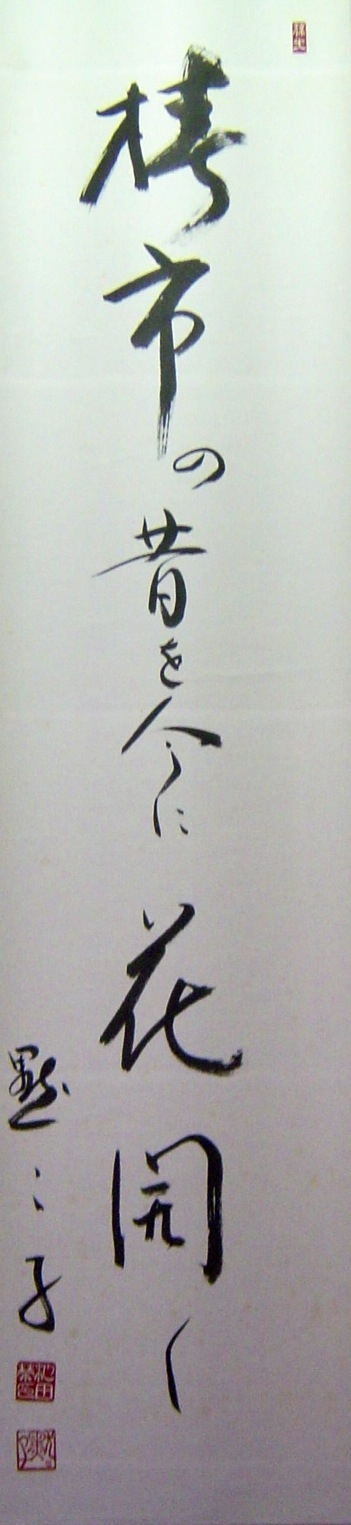 椿市の昔を今に花開く
黙々子